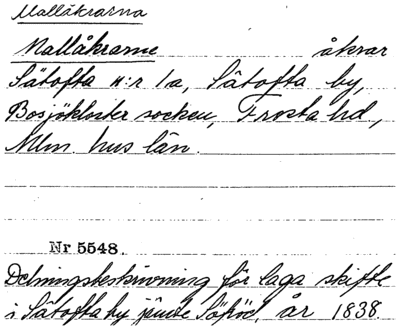 Mallåkrarna
Mallåkrarne åkrar
Sätofta N:r 1a, Sätofta by,
Bosjökloster socken, Frosta hd,
Mlm. hus län.
Nr 5548.
Delningsbeskrivning för laga skifte
i Sätofta by jämte Sjöröd, år 1838.